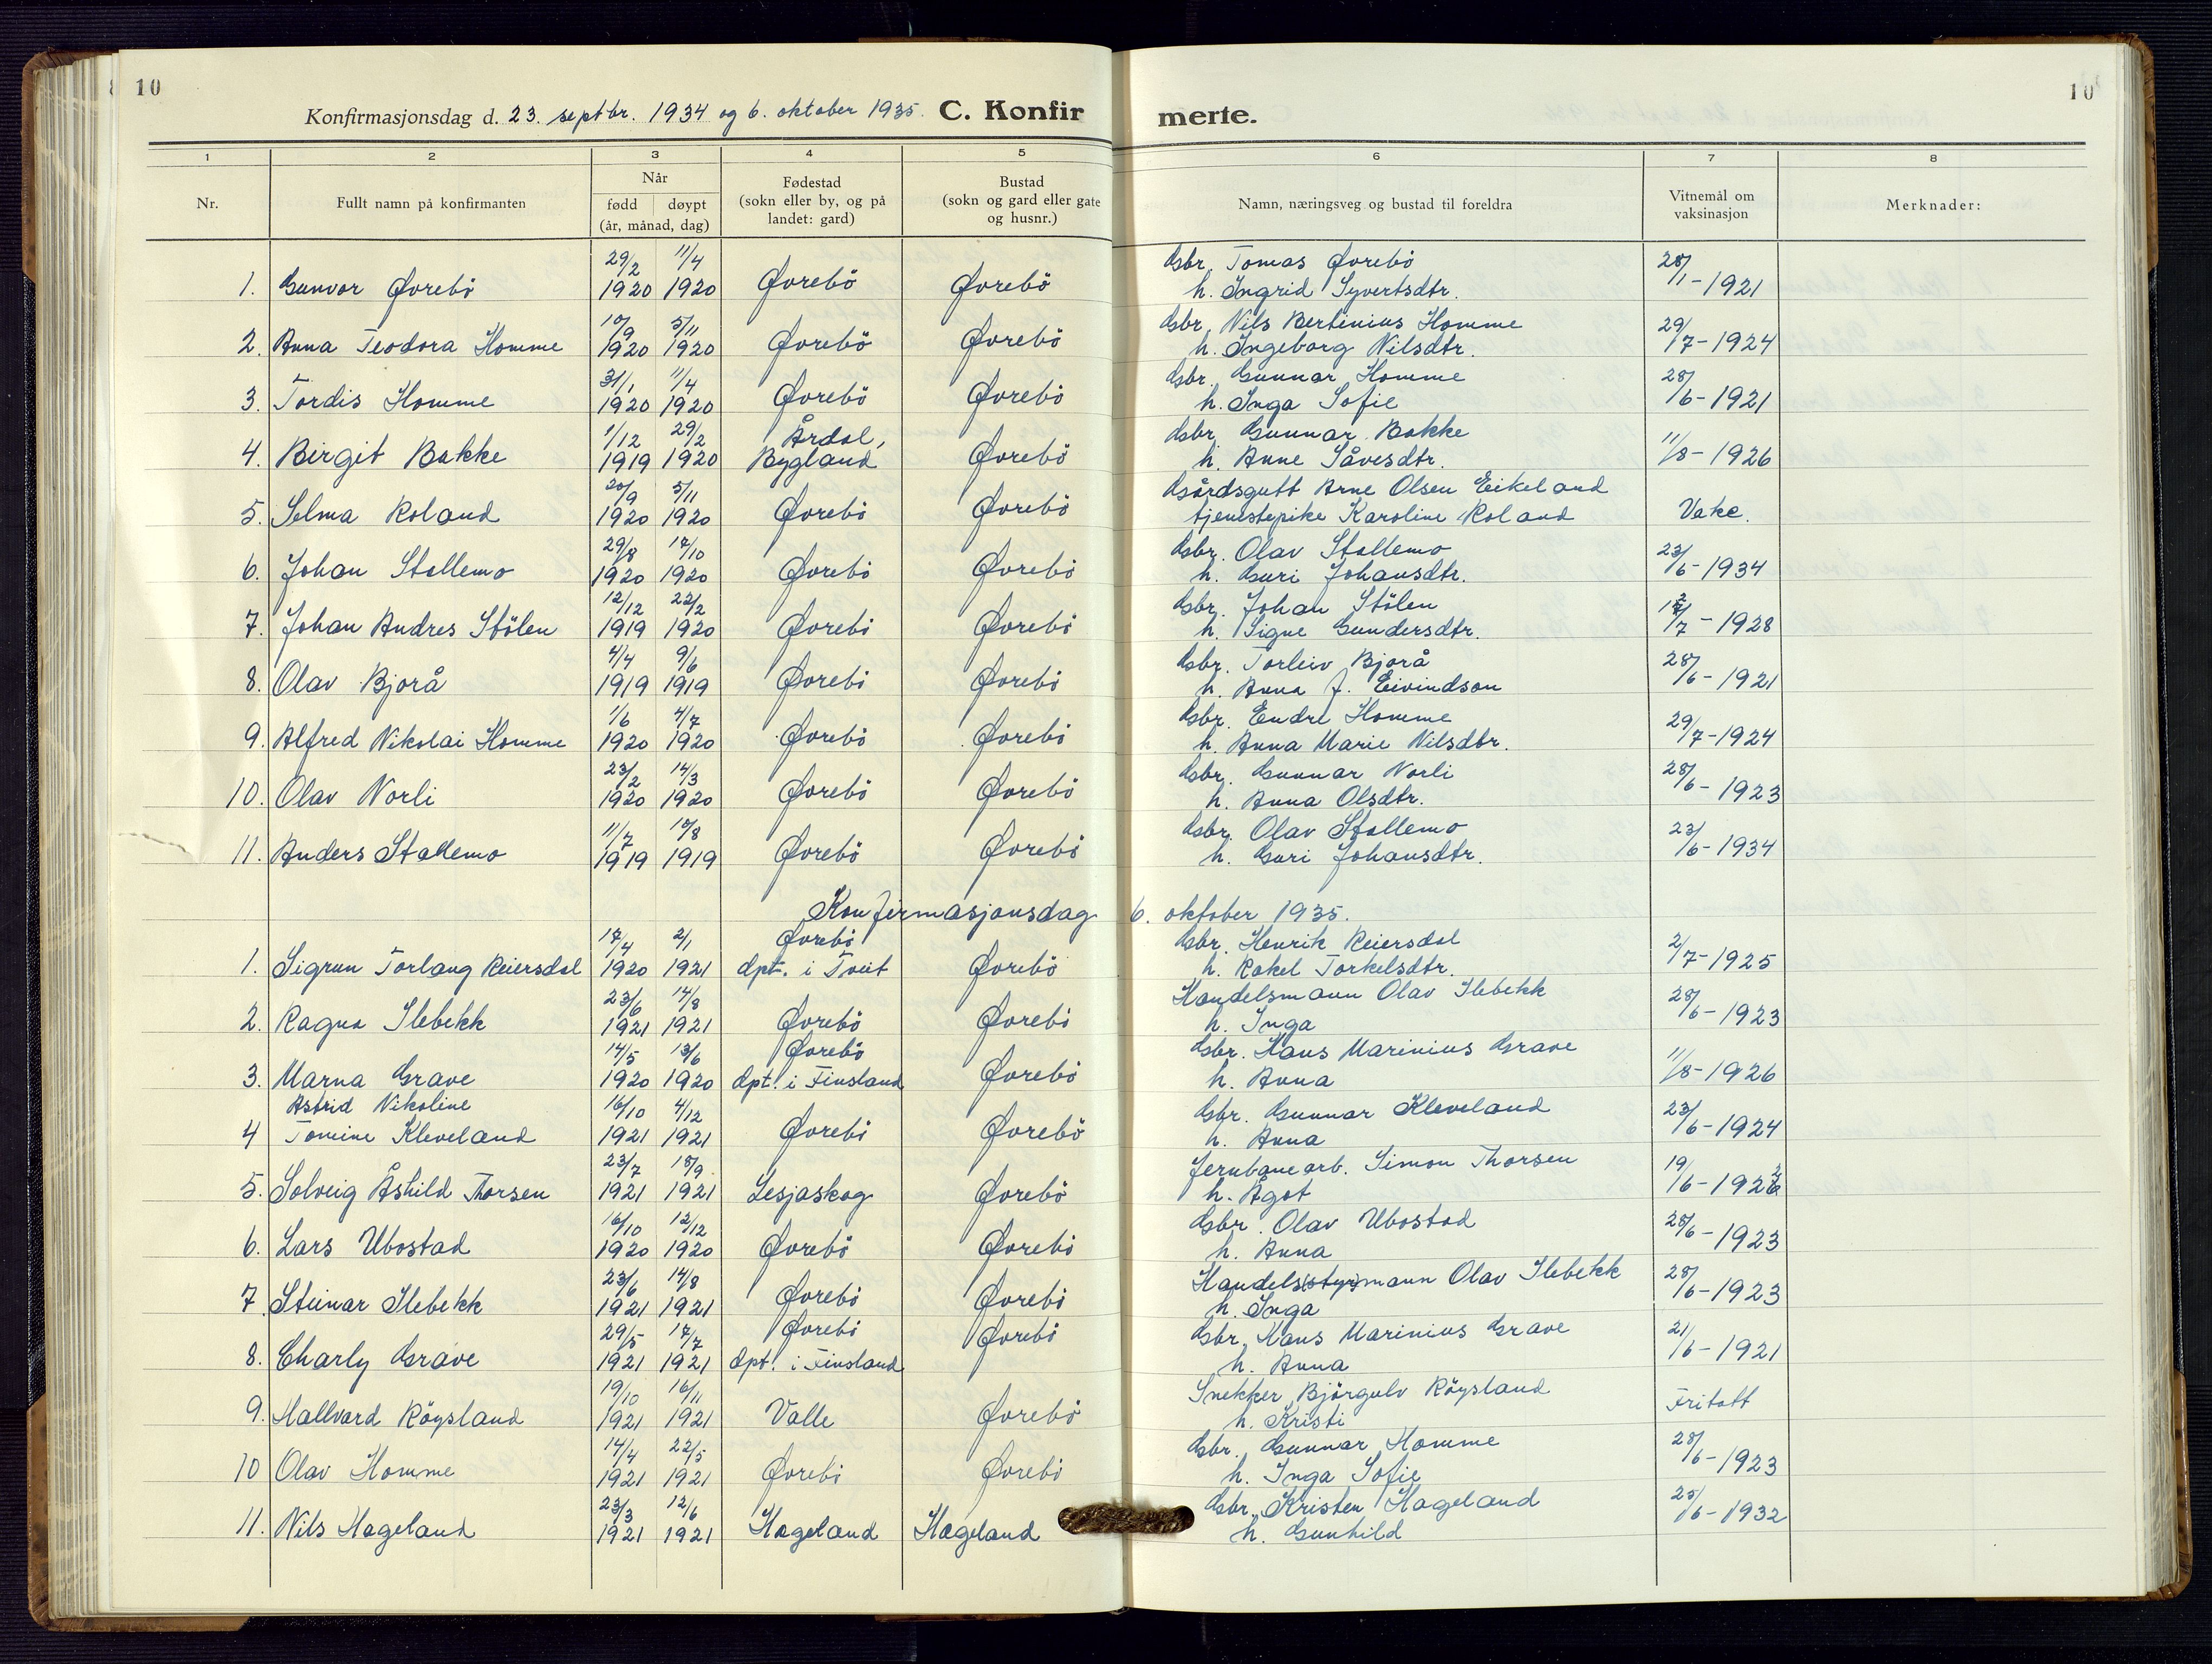 10
10
Konfirmasjonsdag d. 23. septbr. 1934 og 6. oktober 1935. C. Konfirmerte.
1 2 3 4 5 6 7 8
Nr. Fullt namn på konfirmanten Når født døypt (år, månad, dag) Fødestad (sokn eller by, og på landet: gard) Bustad (sokn og gard eller gate og husnr.) Namn, næringsveg og bustad til foreldra Vitnemål om vaksinasjon Merknader:
29/2 11/4 Gbr. Tomas Øvrebö 28/
1. Gunvor Øvrebö 1920 1920 Øvrebö Øvrebö h. Ingrid Syvertsdtr. 1-1921
10/9 5/11 Gbr. Nils Bertinius Homme 29/
2. Anna Teodora Homme 1920 1920 Øvrebö Øvrebö h. Ingeborg Nilsdtr. 7-1924
31/1 11/4 Gbr. Gunnar Homme 28/
3. Tordis Homme 1920 1920 Øvrebö Øvrebö h. Inga Sofie 6-1921
1/12 29/2 Årdal, Gbr. Gunnar Bakke
4. Birgit Bakke 1919 1920 Bygland Øvrebö h. Anne Såvesdtr. 11/8-1926
20/9 5/11 Gårdsgutt Arne Olsen Eikeland
5. Selma Roland 1920 1920 Øvrebö Øvrebö tjenestepike Karoline Roland Vake.
29/8 17/10 Gbr. Olav Stallemo 23/
6. Johan Stallemo 1920 1920 Øvrebö Øvrebö h. Guri Johansdtr. 6-1934
12/12 22/2 Gbr. Johan Stölen
7. Johan Andres Stölen 1919 1920 Øvrebö Øvrebö h. Signe Gundersdtr. 7-1928
4/4 9/6 Gbr. Torleiv Bjorå 28/
8. Olav Bjorå 1919 1919 Øvrebö Øvrebö h. Anna J. Eivindson 6-1921
1/6 4/7 Gbr. Endre Homme 29/
9. Alfred Nikolai Homme 1920 1920 Øvrebö Øvrebö h. Anna Marie Nilsdtr. 7-1924
23/2 14/3 Gbr. Gunnar Norli 28/
10. Olav Norli 1920 1920 Øvrebö Øvrebö h. Anna Olsdtr. 6-1923
11/7 10/8 Gbr. Olav Stallemo 23/
11. Anders Stallemo 1919 1919 Øvrebö Øvrebö h. Guri Johansdtr. 6-1934
Konfirmasjonsdag 6. oktober 1935.
17/4 2/1 Øvrebö Gbr. Henrik Reiersdal
1. Sigrun Torlaug Reiersdal 1920 1921 dpt. i Tveit Øvrebö h. Rakel Torkelsdtr. 2/7-1925
23/6 14/8 Handelsmann Olav Ilebekk 28/
2. Ragna Ilebekk 1921 1921 Øvrebö Øvrebö h. Inga 6-1923
14/5 13/6 Øvrebö Gbr. Hans Marinius Grave
3. Marna Grave 1920 1920 dpt. i Finsland Øvrebö h. Anna 11/8-1926
Astrid Nikoline 16/10 4/12 Gbr. Gunnar Kleveland 23/
4 Tomine Kleveland 1921 1921 Øvrebö Øvrebö h. Anna 6-1924
23/7 18/9 Jernbanearb. Simon Thorsen 19/
5. Solveig Åshild Thorsen 1921 1921 Lesjaskog Øvrebö h. Ågot
16/10 12/12 Gbr. Olav Ubostad 28/
6. Lars Ubostad 1920 1920 Øvrebö Øvrebö h. Anna 6-1923
23/6 14/8 Handels(styr)mann Olav Ilebekk 28/
7. Steinar Ilebekk 1921 1921 Øvrebö Øvrebö h. Inga 6-1923
29/5 17/7 Øvrebö Øvrebö Gbr. Hans Marinius Grave 21/
8. Charly Grave 1921 1921 dpt. i Finsland h. Anna 6-1921
19/10 16/11 Snekker Björgulv Röysland
9. Hallvard Röysland 1921 1921 Valle Øvrebö h. Kristi Fritatt
14/4 22/5 Gbr. Gunnar Homme 28/
10 Olav Homme 1921 1921 Øvrebö Øvrebö h. Inga Sofie 6-1923
23/3 12/6 Gbr. Kristen Hageland 25/
11. Nils Hageland 1921 1921 Hageland Hageland h. Gunhild 6-1932